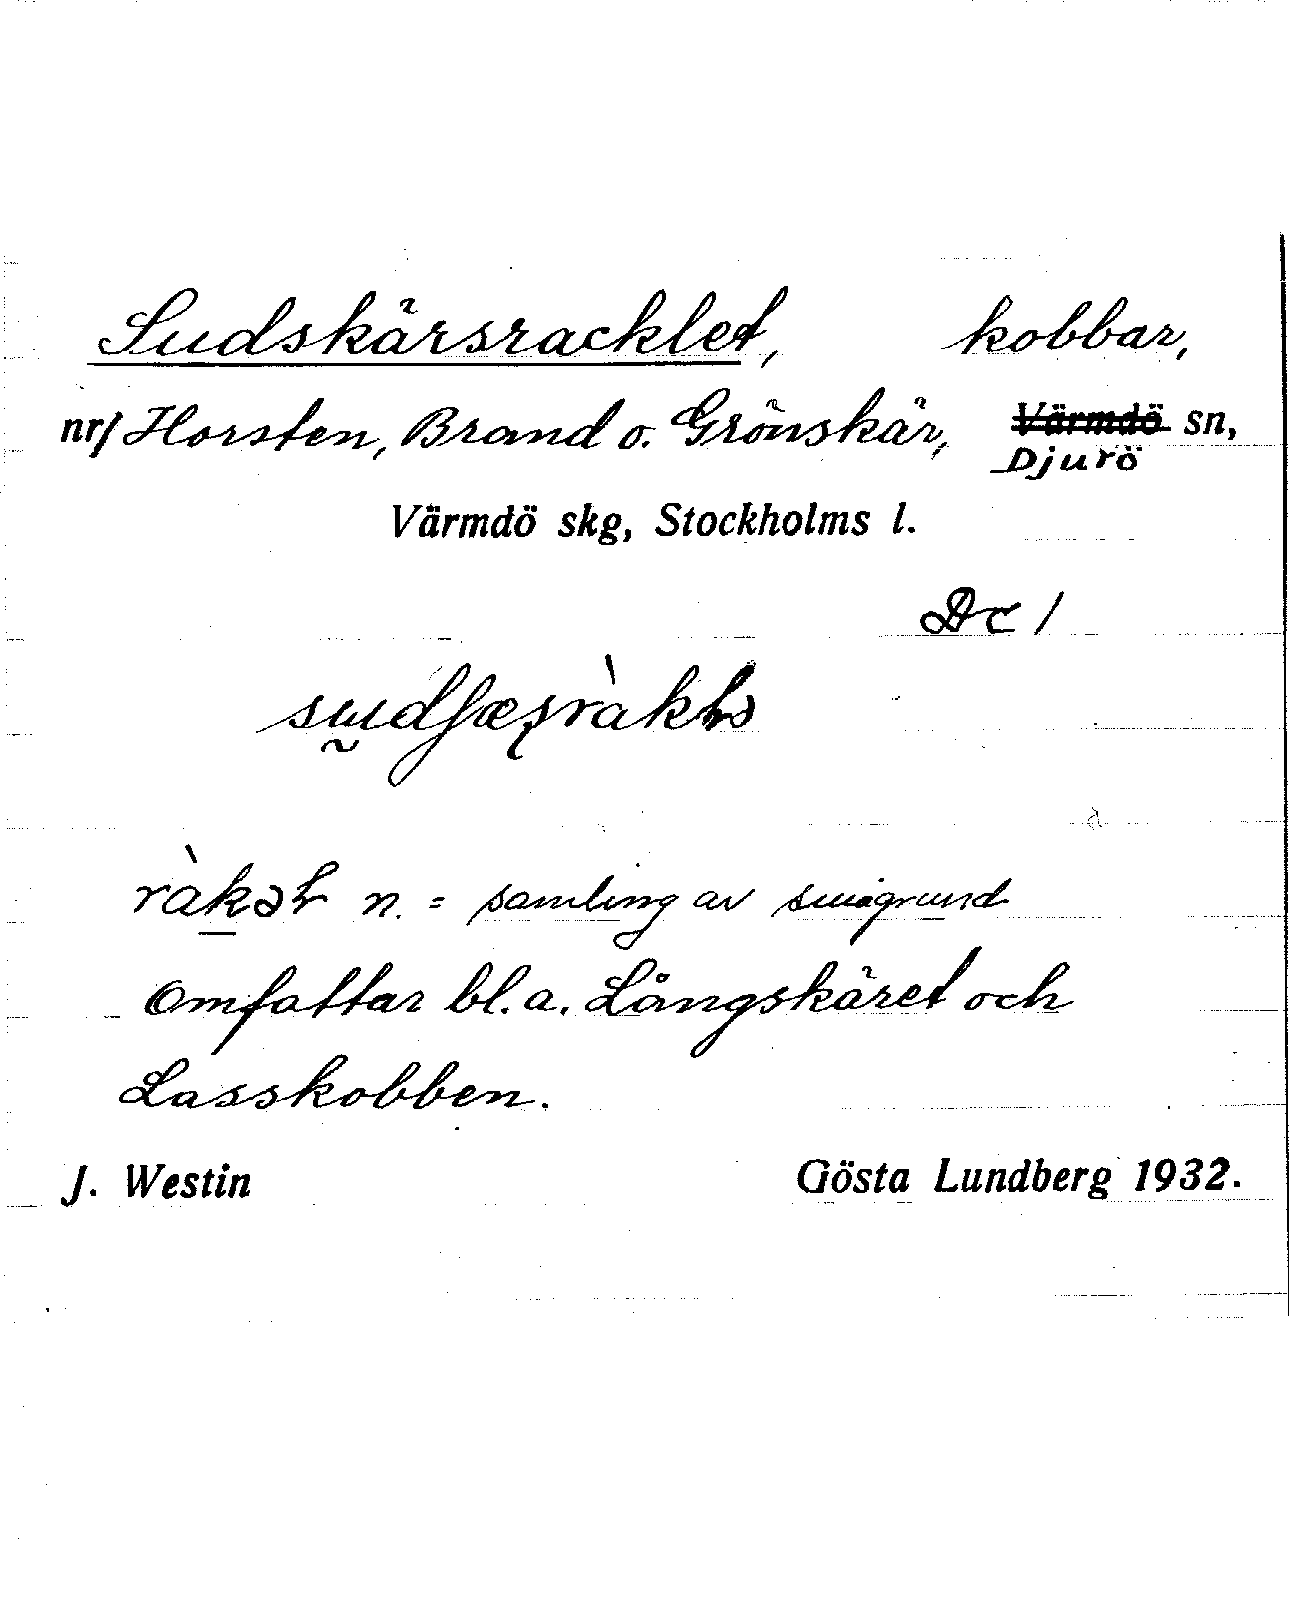 Sudskärsracklet, kobbar,
nr/ Horsten, Brand o. Grönskär, Värmdö sn,
Djurö
Värmdö skg, Stockholms l.
Dc 1
n. = samling av smågrund
Omfattar bl. a. Långskäret och
Lasskobben.
J. Westin Gösta Lundberg 1932.